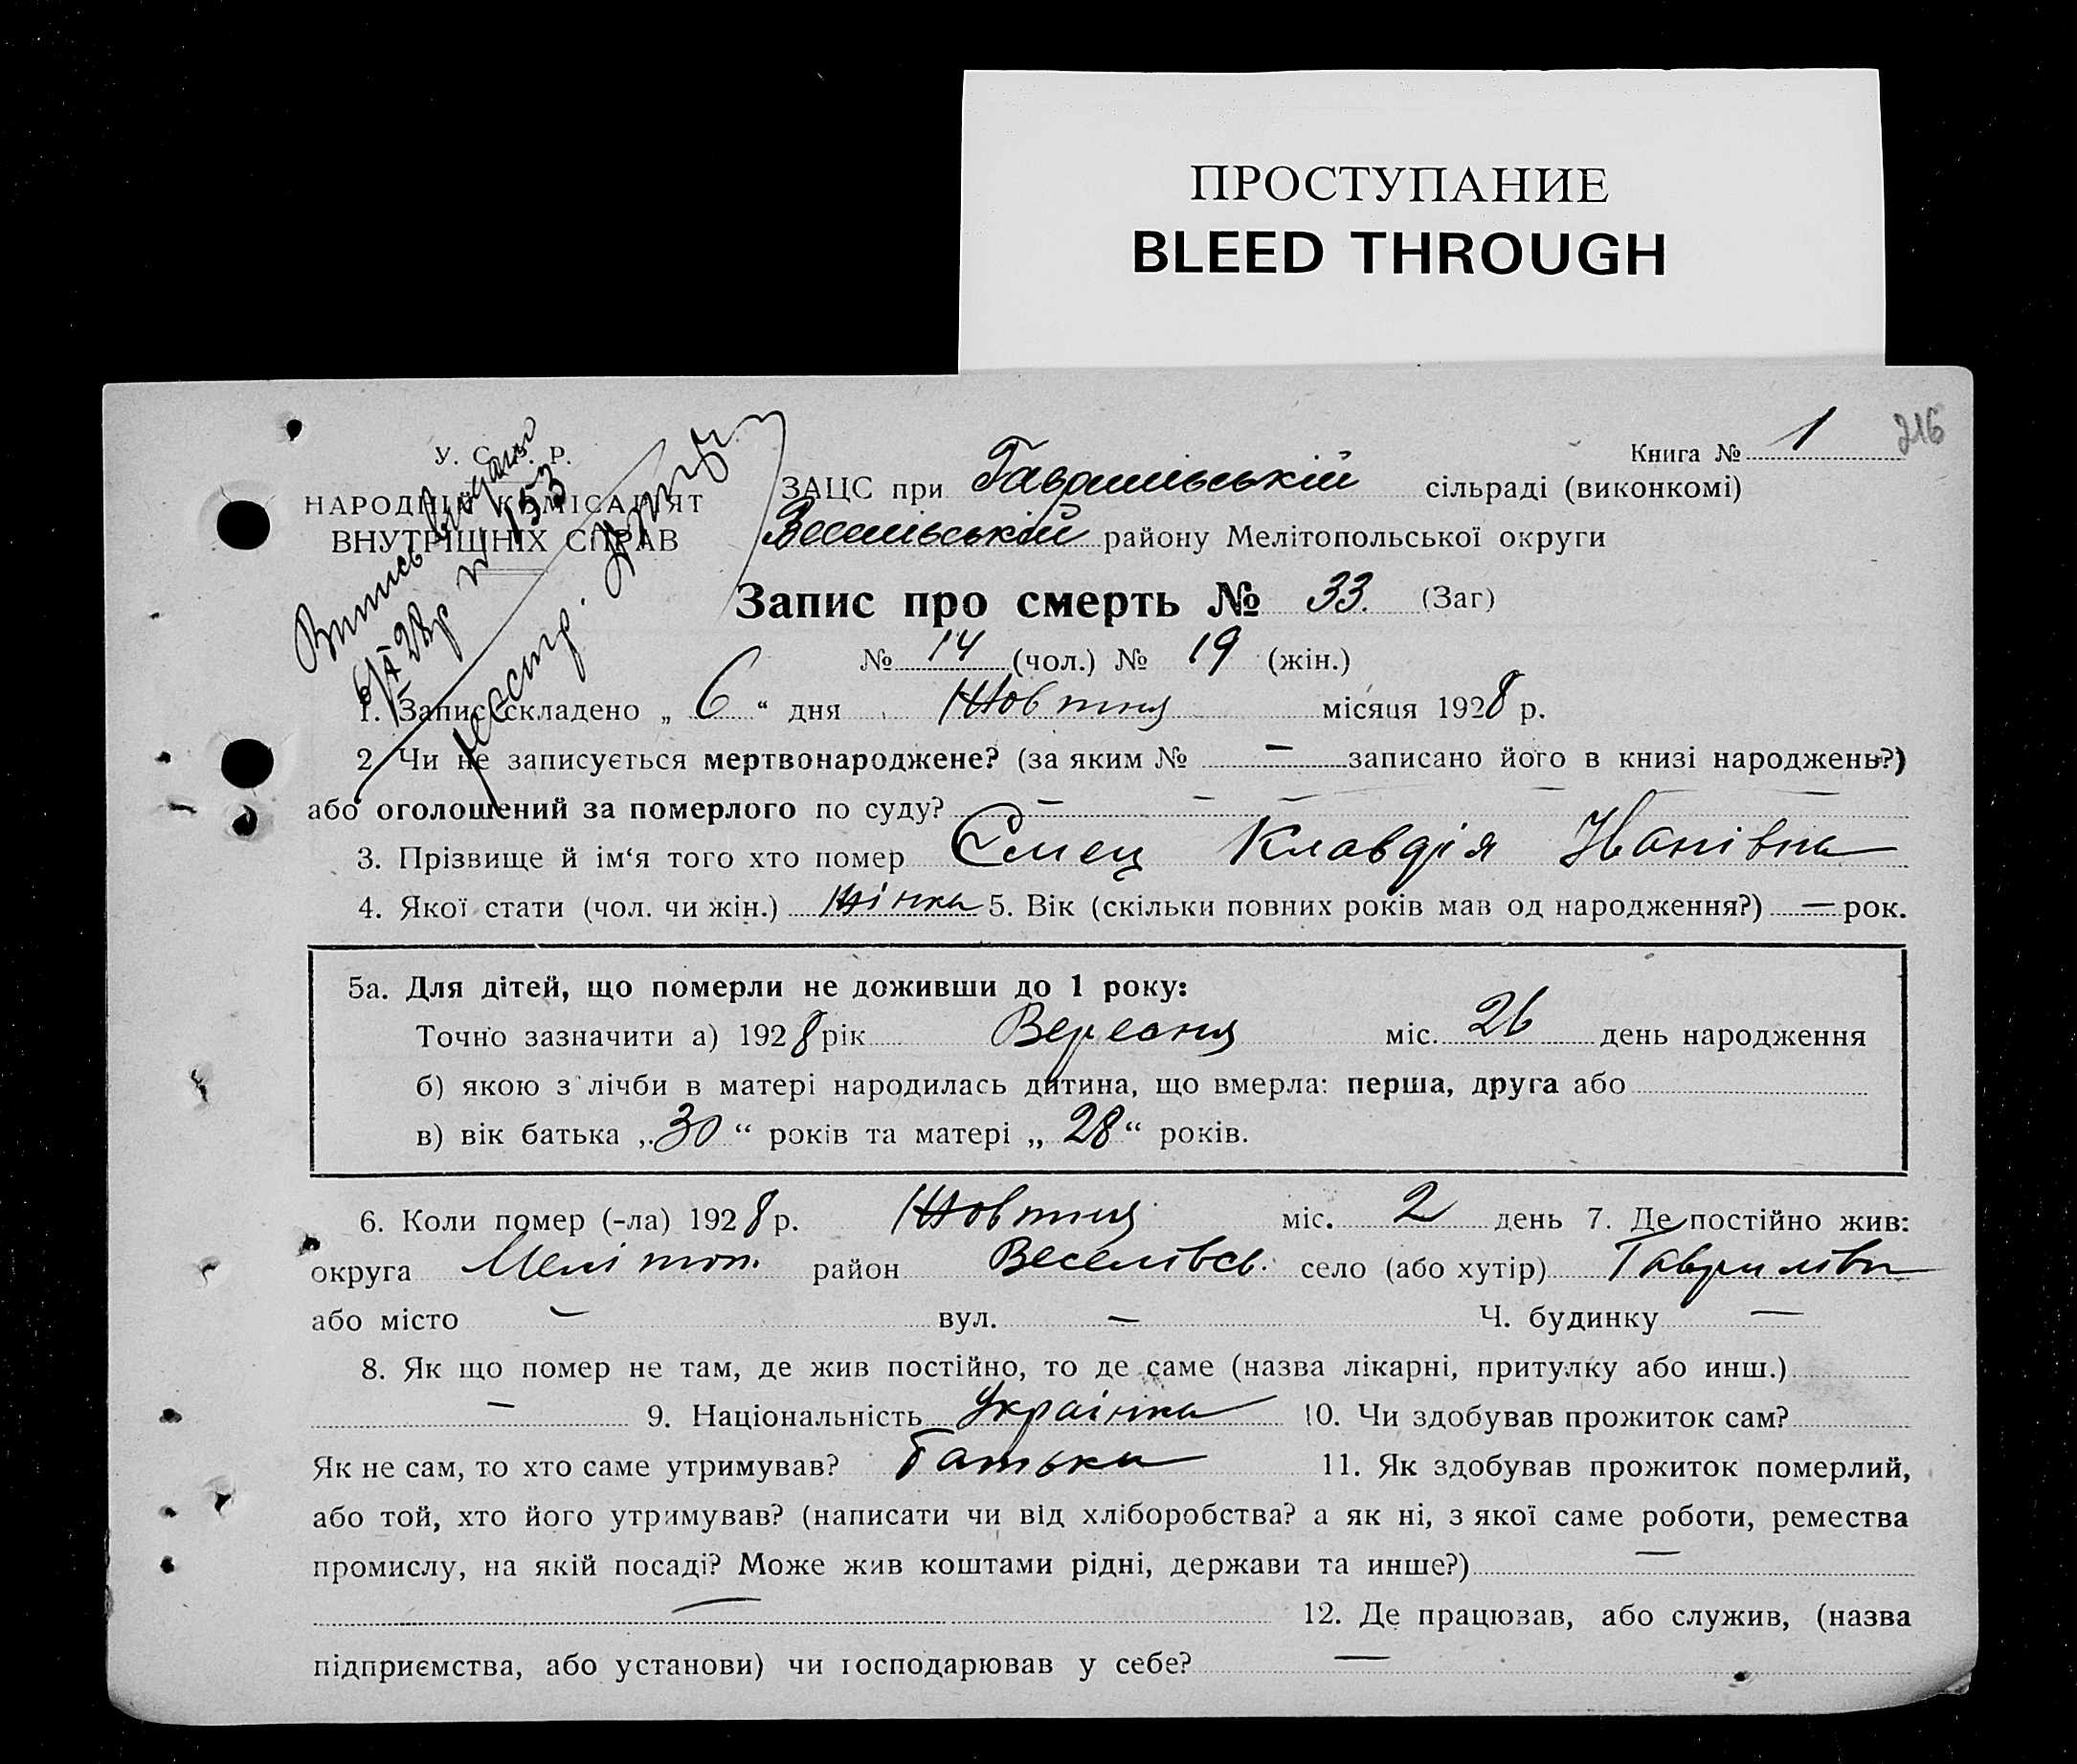 ПРОСТУПАНИЕ
BLEED THROUGH
216
Книга № 1
У. С. Р. Р.
НАРОДНІЙ КОМІСАРІЯТ
ВНУТРІШНІХ СПРАВ
Випись видана
6/X 28р № 153
ЗАЦС при Гаврилівській сільраді (виконкомі)
Веселівській району Мелітопольської округи
Запис про смерть № 33. (Заг)
№ 14 (чол.) № 19 (жін.)
1. Запис складено „ 6 “ дня Жовтня місяця 1928 р.
2. Чи не записується мертвонароджене? (за яким № — записано його в книзі народжень?)
або оголошений за померлого по суду? — — —
3. Прізвище й ім‘я того хто помер Ємец Клавдія Іванівна
4. Якої стати (чол. чи жін.) Жінка 5. Вік (скільки повних років мав од народження?) — рок.
5а. Для дітей, що померли не доживши до 1 року:
Точно зазначити а) 1928 рік Вересня міс. 26 день народження
б) якою з лічби в матері народилась дитина, що вмерла: перша, друга або
в) вік батька „ 30 “ років та матері „ 28 “ років.
6. Коли помер (-ла) 1928 р. Жовтня міс. 2 день 7. Де постійно жив:
округа Мелітоп. район Веселівсь. село (або хутір) Гаврилівка
або місто — вул. — Ч. будинку —
8. Як що помер не там, де жив постійно, то де саме (назва лікарні, притулку або инш.)
— 9. Національність Українка 10. Чи здобував прожиток сам?
Як не сам, то хто саме утримував? Батьки 11. Як здобував прожиток померлий,
або той, хто його утримував? (написати чи від хліборобства? а як ні, з якої саме роботи, ремества
промислу, на якій посаді? Може жив коштами рідні, держави та инше?) —
— 12. Де працював, або служив, (назва
підприємства, або установи) чи господарював у себе? —